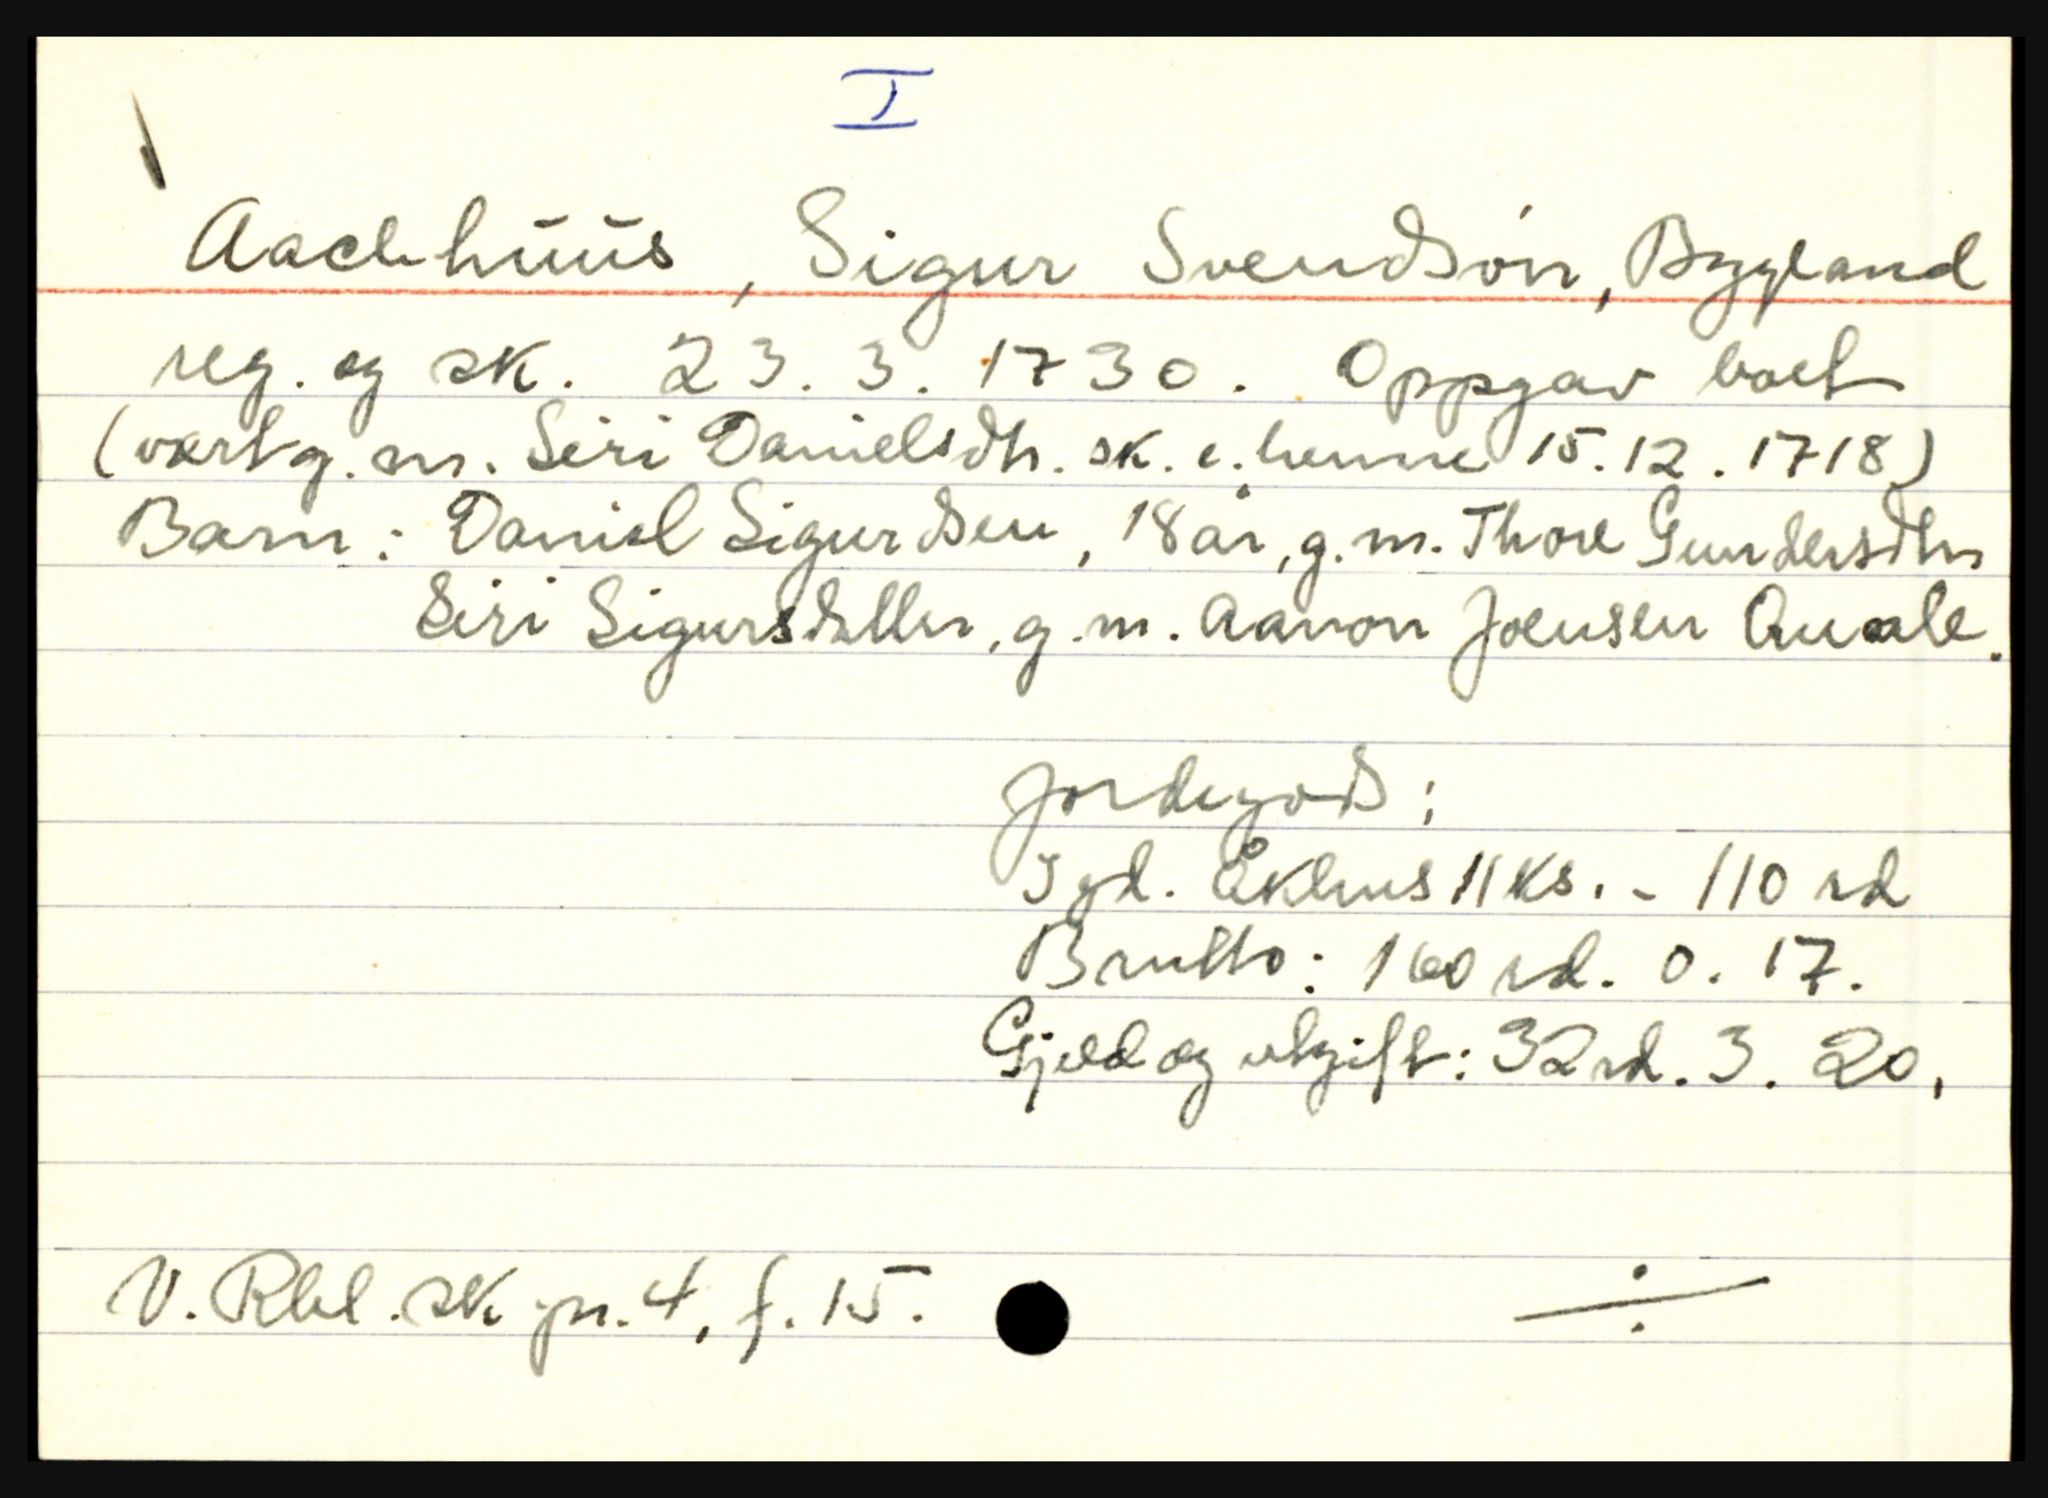 I
Aachhuus, Sigur Svendsön, Bygland
reg. og sk. 23. 3. 1730. Oppgav boet
(vært g. m. Siri Danielsdtr. sk. e. henne 15. 12. 1718)
Barn: Daniel Sigurdsen, 18 år, g. m. Thore Gundersdtr
Siri Sigursdatter, g. m. Aanon Joensen Quale.
Jordegods:
I gd. Åkhus 11 ks. - 110 rd
Brutto: 160 rd. 0. 17.
Gjeld og utgift: 32 rd. 3. 20.
V. Rbl. sk pr. 4, f. 15. ÷